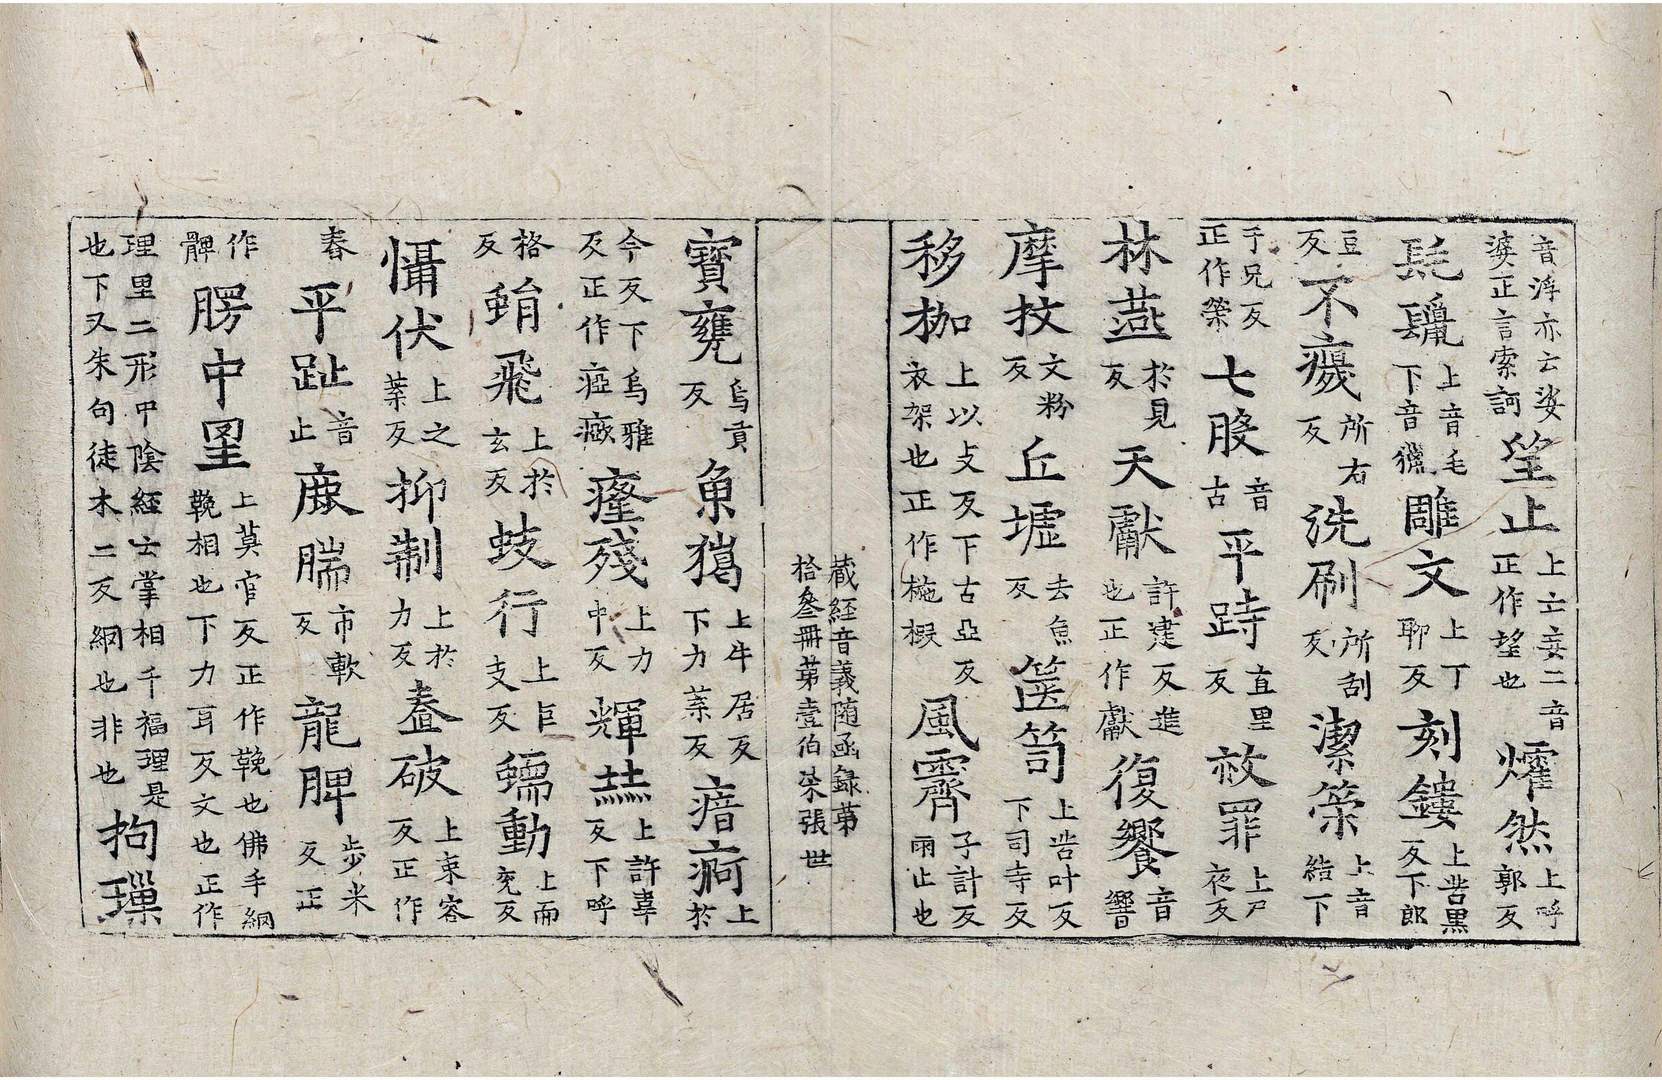 音浮亦云娑婆正言索訶望止上亡妄二音正作望也爟然上呼郭反
髦鬣上音毛下音獵雕文上丁聊反刻鏤上苦黑反下郎
豆反不所右反洗刷所刮反潔上音結下
于兄反正作榮七股音古平跱直里反赦罪上尸夜反
林燕於見反天獻許建反進也正作獻復饗音響
摩抆文粉反丘墟去魚反篋笥上苦叶反下司寺反
移枷上以支反下古亞反衣架也正作椸風霽子計反雨止也
藏經音義随函録第
拾叁冊第壹伯柒張 世
寶甕烏貢反魚獦上牛居反下力葉反瘖上於
今反下烏雅反正作瘂癃殘上力中反輝赫上許韋反下呼
格反蜎飛上於玄反蚑行上巨支反蠕動上而兖反
慴伏上之葉反抑制上於力反舂破上束容反正作
舂平趾音止鹿腨市軟反龍髀步米反正
作髀中上莫官反正作鞔也佛手網鞔相也下力耳反文也正作
理里二形中陰經云掌相千福理是也下又朱句徒木二反網也非也拘璅